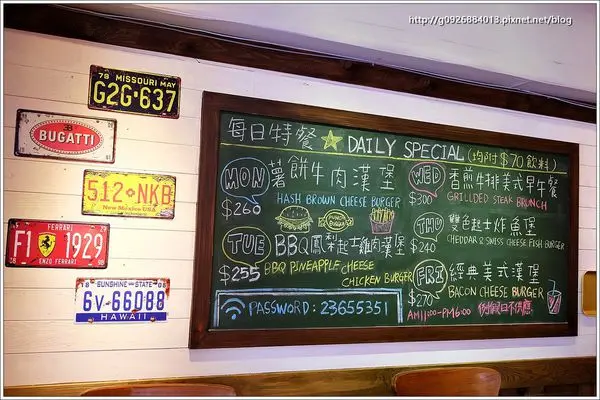 http://g0926884013.pixnet.net/blog
79 MISSOURI MAY
G2G·637
BUGATTI
512 NKB
New Mexico USA
FERRARI
F1 1929
ENZO FERRARI
SUNSHINE STATE
6V-66088
HAWAII
每日特餐 ★ DAILY SPECIAL (均附$70飲料)
MON 薯餅牛肉漢堡
$260 HASH BROWN CHEESE BURGER
TUE BBQ鳳梨起士雞肉漢堡
$255 BBQ PINEAPPLE CHEESE
CHICKEN BURGER
PASSWORD: 23655351
WED 香煎牛排美式早午餐
$300 GRILLED STEAK BRUNCH
THU 雙色起士炸魚堡
$240 CHEDDAR & SWISS CHEESE FISH BURGER
FRI 經典美式漢堡
$270 BACON CHEESE BURGER
AM11:00-PM6:00 例假日不供應